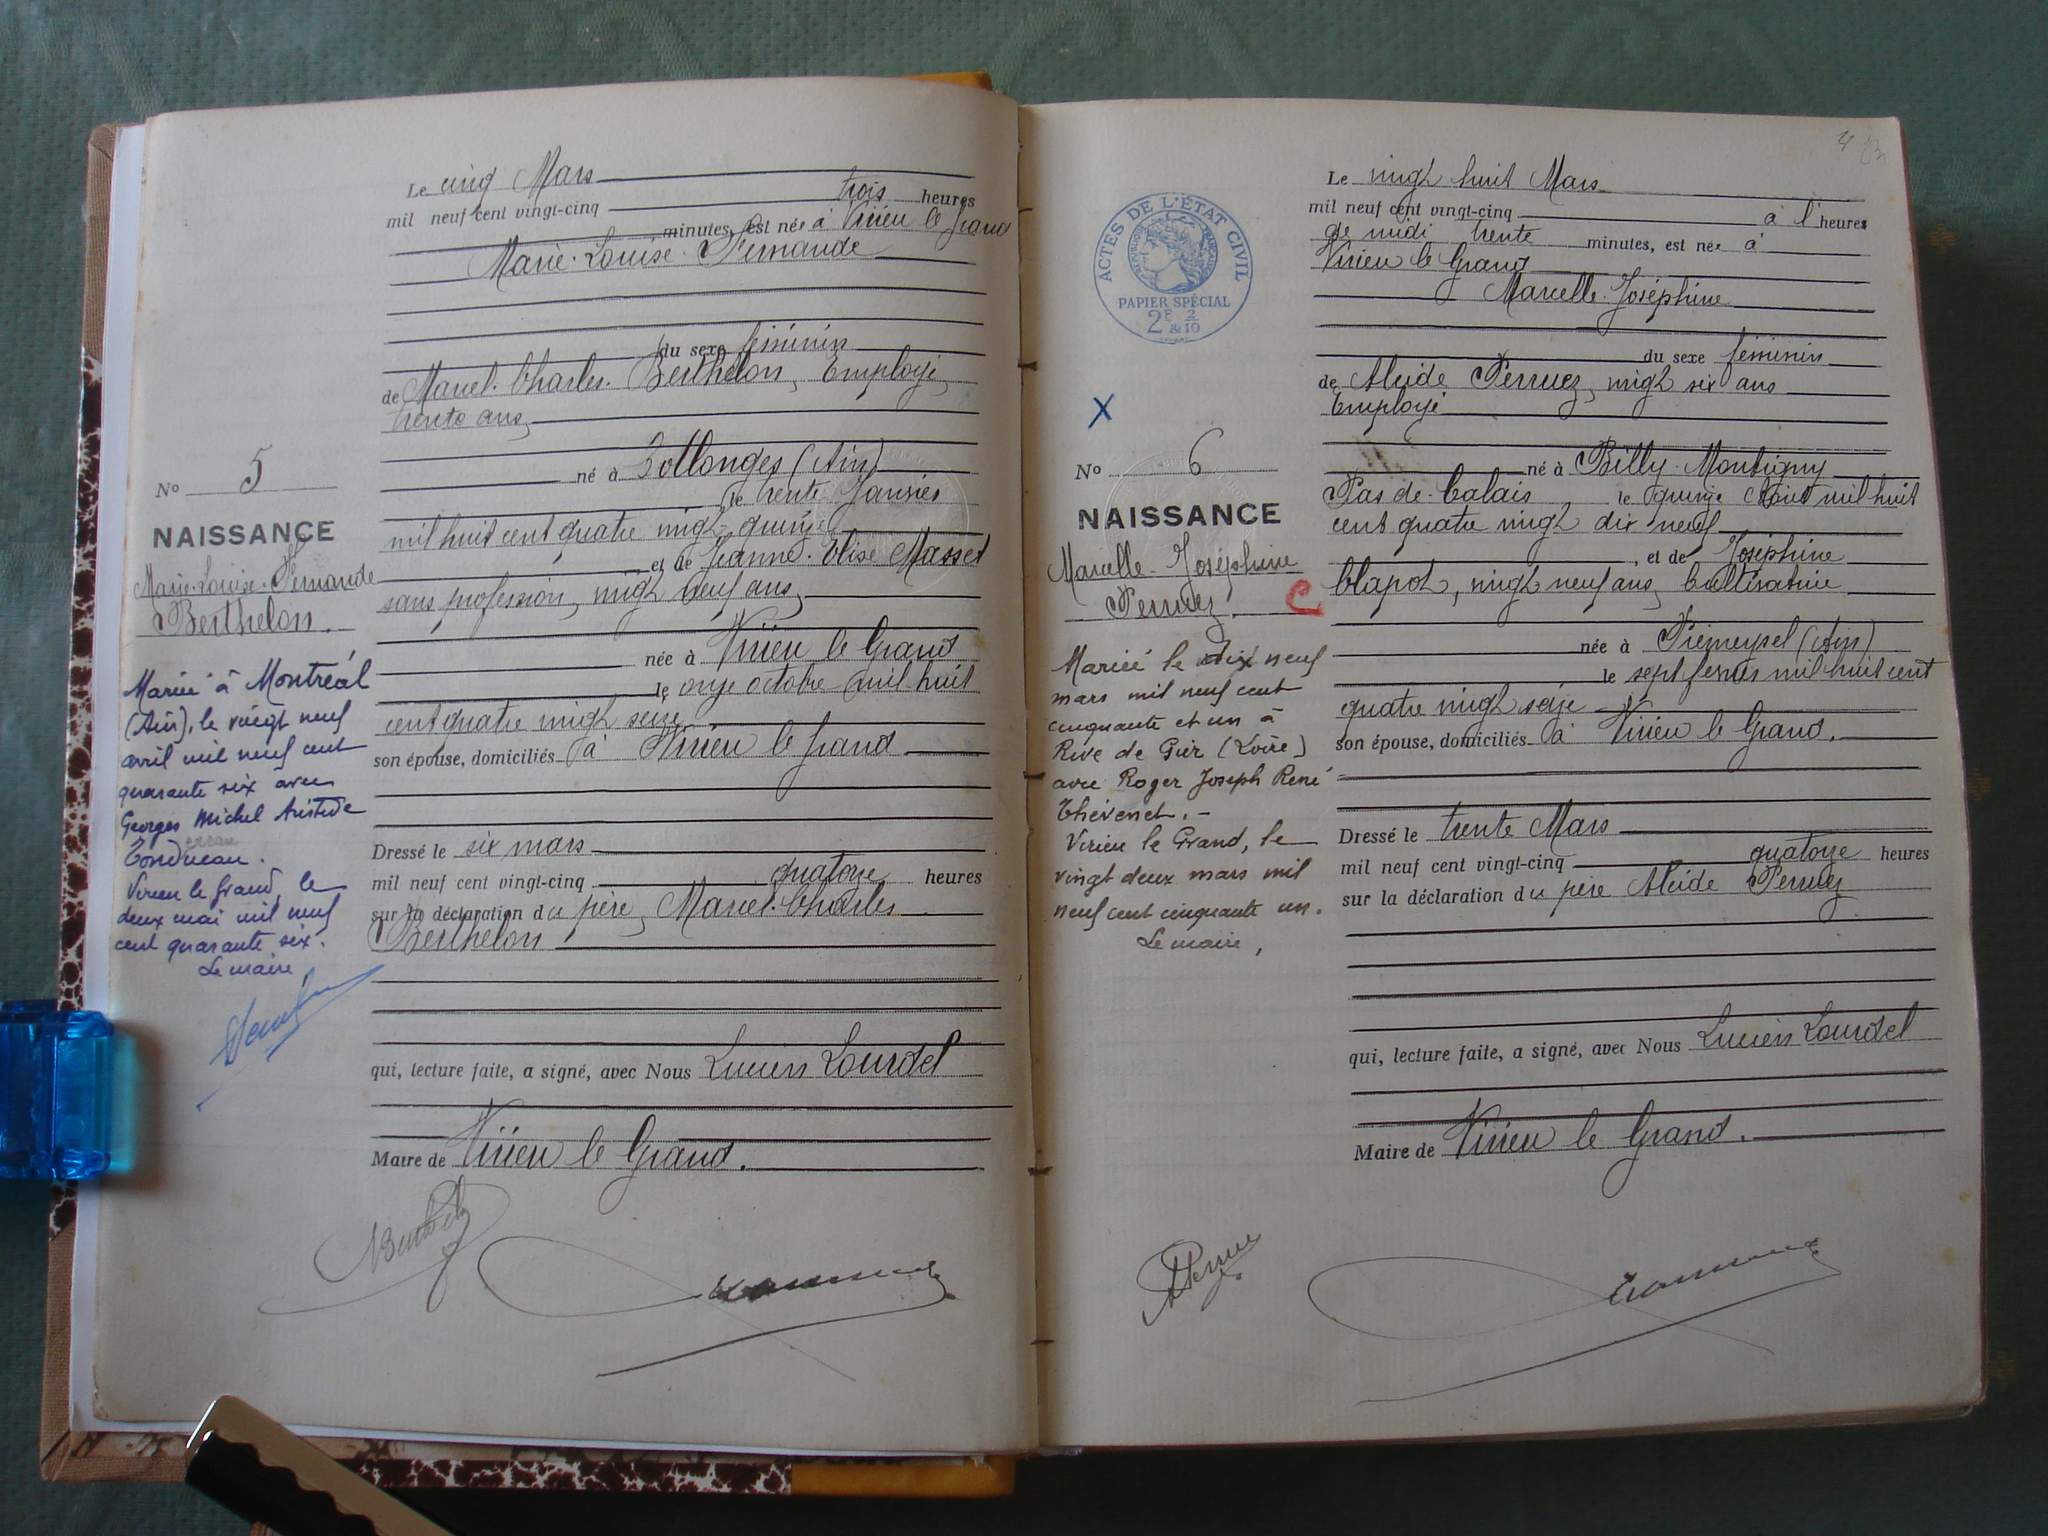 Le cinq Mars
mil neuf cent vingt-cinq trois heures
minutes, est née à Virieu le Grand
Marie-Louise-Fernande
du sexe féminin
de Marcel-Charles Berthelon, Employé,
trente ans,
né à Collonges (Ain)
le trente Janvier
mil huit cent quatre vingt quinze
et de Jeanne-Elise Masset
sans profession, vingt neuf ans,
née à Virieu le Grand
le onze octobre mil huit
cent quatre vingt seize
son épouse, domiciliés à Virieu le Grand
Dressé le six mars
mil neuf cent vingt-cinq quatorze heures
sur la déclaration du père, Marcel-Charles
Berthelon
qui, lecture faite, a signé, avec Nous Lucien Lourdel
Maire de Virieu le Grand.
No 5
NAISSANCE
Marie-Louise-Fernande
Berthelon.
Mariée à Montréal
(Ain), le vingt neuf
avril mil neuf cent
quarante six avec
Georges Michel Aristide
Virieu le Grand, le
deux mai mil neuf
cent quarante six.
Le maire
4
ACTES DE L'ÉTAT CIVIL
RÉPUBLIQUE FRANÇAISE
PAPIER SPÉCIAL
2F 2
& 10
X
Le vingt huit Mars
mil neuf cent vingt-cinq à l'heures
de midi trente minutes, est née à
Virieu le Grand
Marcelle-Joséphine
du sexe féminin
de Alcide Perruez, vingt six ans
Employé
né à Billy-Montigny
Pas de-Calais le quinze Août mil huit
cent quatre vingt dix neuf
, et de Joséphine
Clapot, vingt neuf ans, Cultivatrice
née à Prémeyzel (Ain)
le sept février mil huit cent
quatre vingt seize
son épouse, domiciliés à Virieu le Grand.
Dressé le trente Mars
mil neuf cent vingt-cinq quatorze heures
sur la déclaration du père Alcide Perruez
qui, lecture faite, a signé, avec Nous Lucien Lourdel
Maire de Virieu le Grand.
No 6
NAISSANCE
Marcelle-Joséphine
Perruez. C
Mariée le dix neuf
mars mil neuf cent
cinquante et un à
Rive de Gier (Loire)
avec Roger Joseph René
Thévenet.-
Virieu le Grand, le
vingt deux mars mil
neuf cent cinquante un.
Le maire,